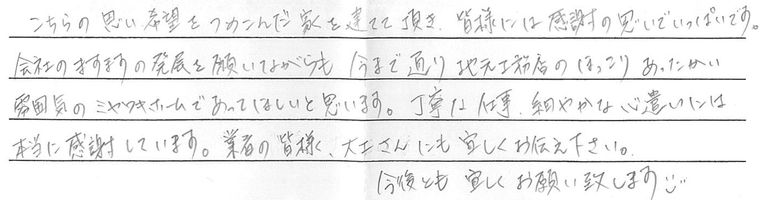 こちらの思い希望をつめこんだ家を建てて頂き、皆様には感謝の思いでいっぱいです。
会社のますますの発展を願いながらも 今まで通り地元工務店のほっこりあったかい
雰囲気のミヤワキホームであってほしいと思います。丁寧な仕事、細やかな心遣いには
本当に感謝しています。業者の皆様、大工さんにも宜しくお伝え下さい。
今後とも 宜しくお願い致します